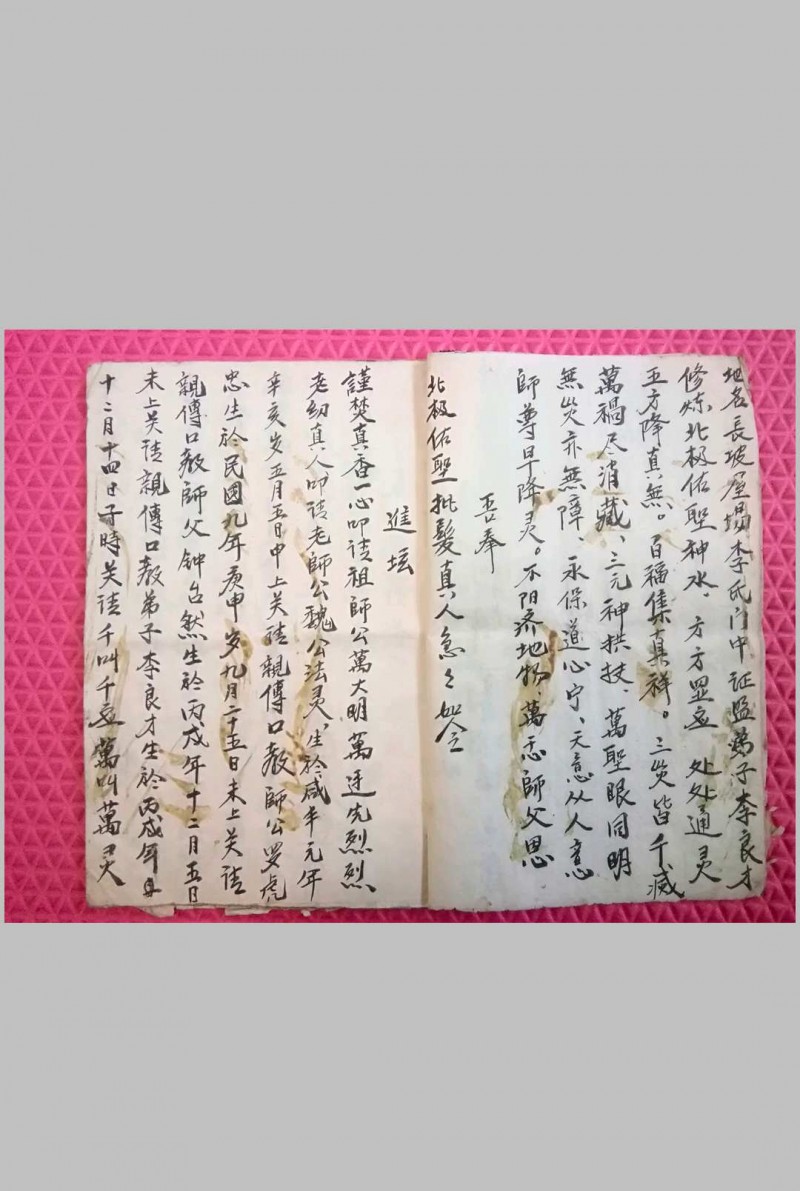 地名長坡屋場李氏门中证盟弟子李良才
修炼北极佑聖神水、方方显应 处处通灵
五方降真炁。百福集真祥。三災皆千滅
萬禍尽消藏、三元神拱技、萬聖眼同明
無災亦無障、永保道心宁、天意从人意
師尊早降灵。不阳济地物、萬忘師父思
吾奉
北极佑聖批髮真人急々如令
進坛
謹焚真香一心叩请祖師公萬大明萬 先烈烈
老幼真人叩请老師公魏公法灵、生於咸丰元年
辛亥岁五月五日中上关请親傳口教師公罗虎
忠生於民國九年庚申岁九月二十五日未上关请
親傳口教師父钟台然生於丙戌年十二月五日
未上关请親傳口教弟子李良才生於丙戌年
十二月十四日子時关请千叫千应萬叫萬灵